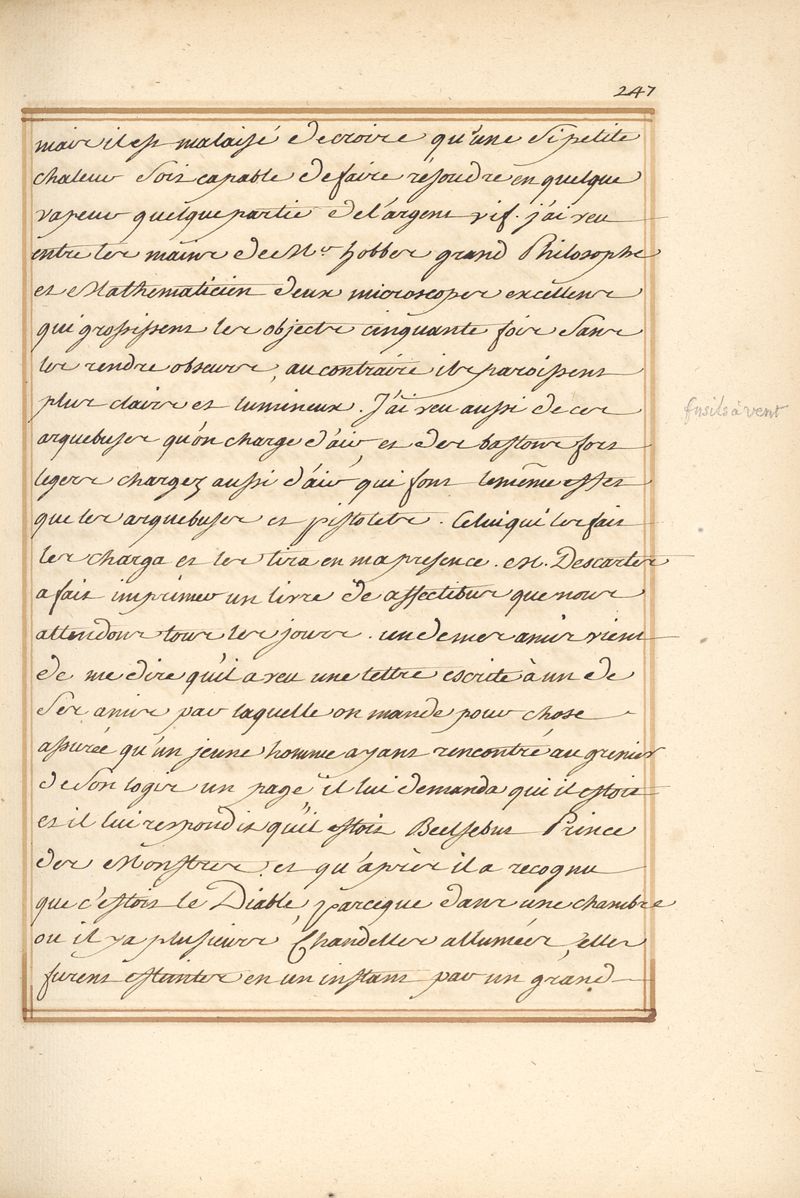 247
mais il est malaisé de croire qu'une si petite
chaleur soit capable de faire résoudre en quelque
vapeur quelque partie de l'argent vif. j'ai veu
entre les mains de Mr. hobbes grand Philosophe
et Mathematicien deux microscopes excellens
qui grossissent les objects cinquante fois sans
les rendre obscurs, au contraire ils paroissent
plus clairs et lumineux. J'ai veu aussi de ces
arquebuses qu'on charge d'air, et des bastons fort
legers chargez aussi d'air, qui font le même effet
que les arquebuses et pistolets. Celui qui les fait
les charga et les tira en ma presence. M. Descartes
a fait imprimer un livre de affectibus que nous
attendons tous les jours. un de mes amis vient
de me dire qu'il a veu une lettre escrite à un de
ses amis par laquelle on mande pour chose
assurée qu'un jeune homme ayant rencontré au grenier
de son logis un page il lui demanda qui il estoit
et il lui respondit qu'il estoit Beelsebut Prince
des Monstres, et qu'après il a recognu
que c'estoit le Diable, parceque dans une chambre
ou il y a plusieurs Chandelles allumées, elles
furent estaintes en un instant par un grand
fusils à vent